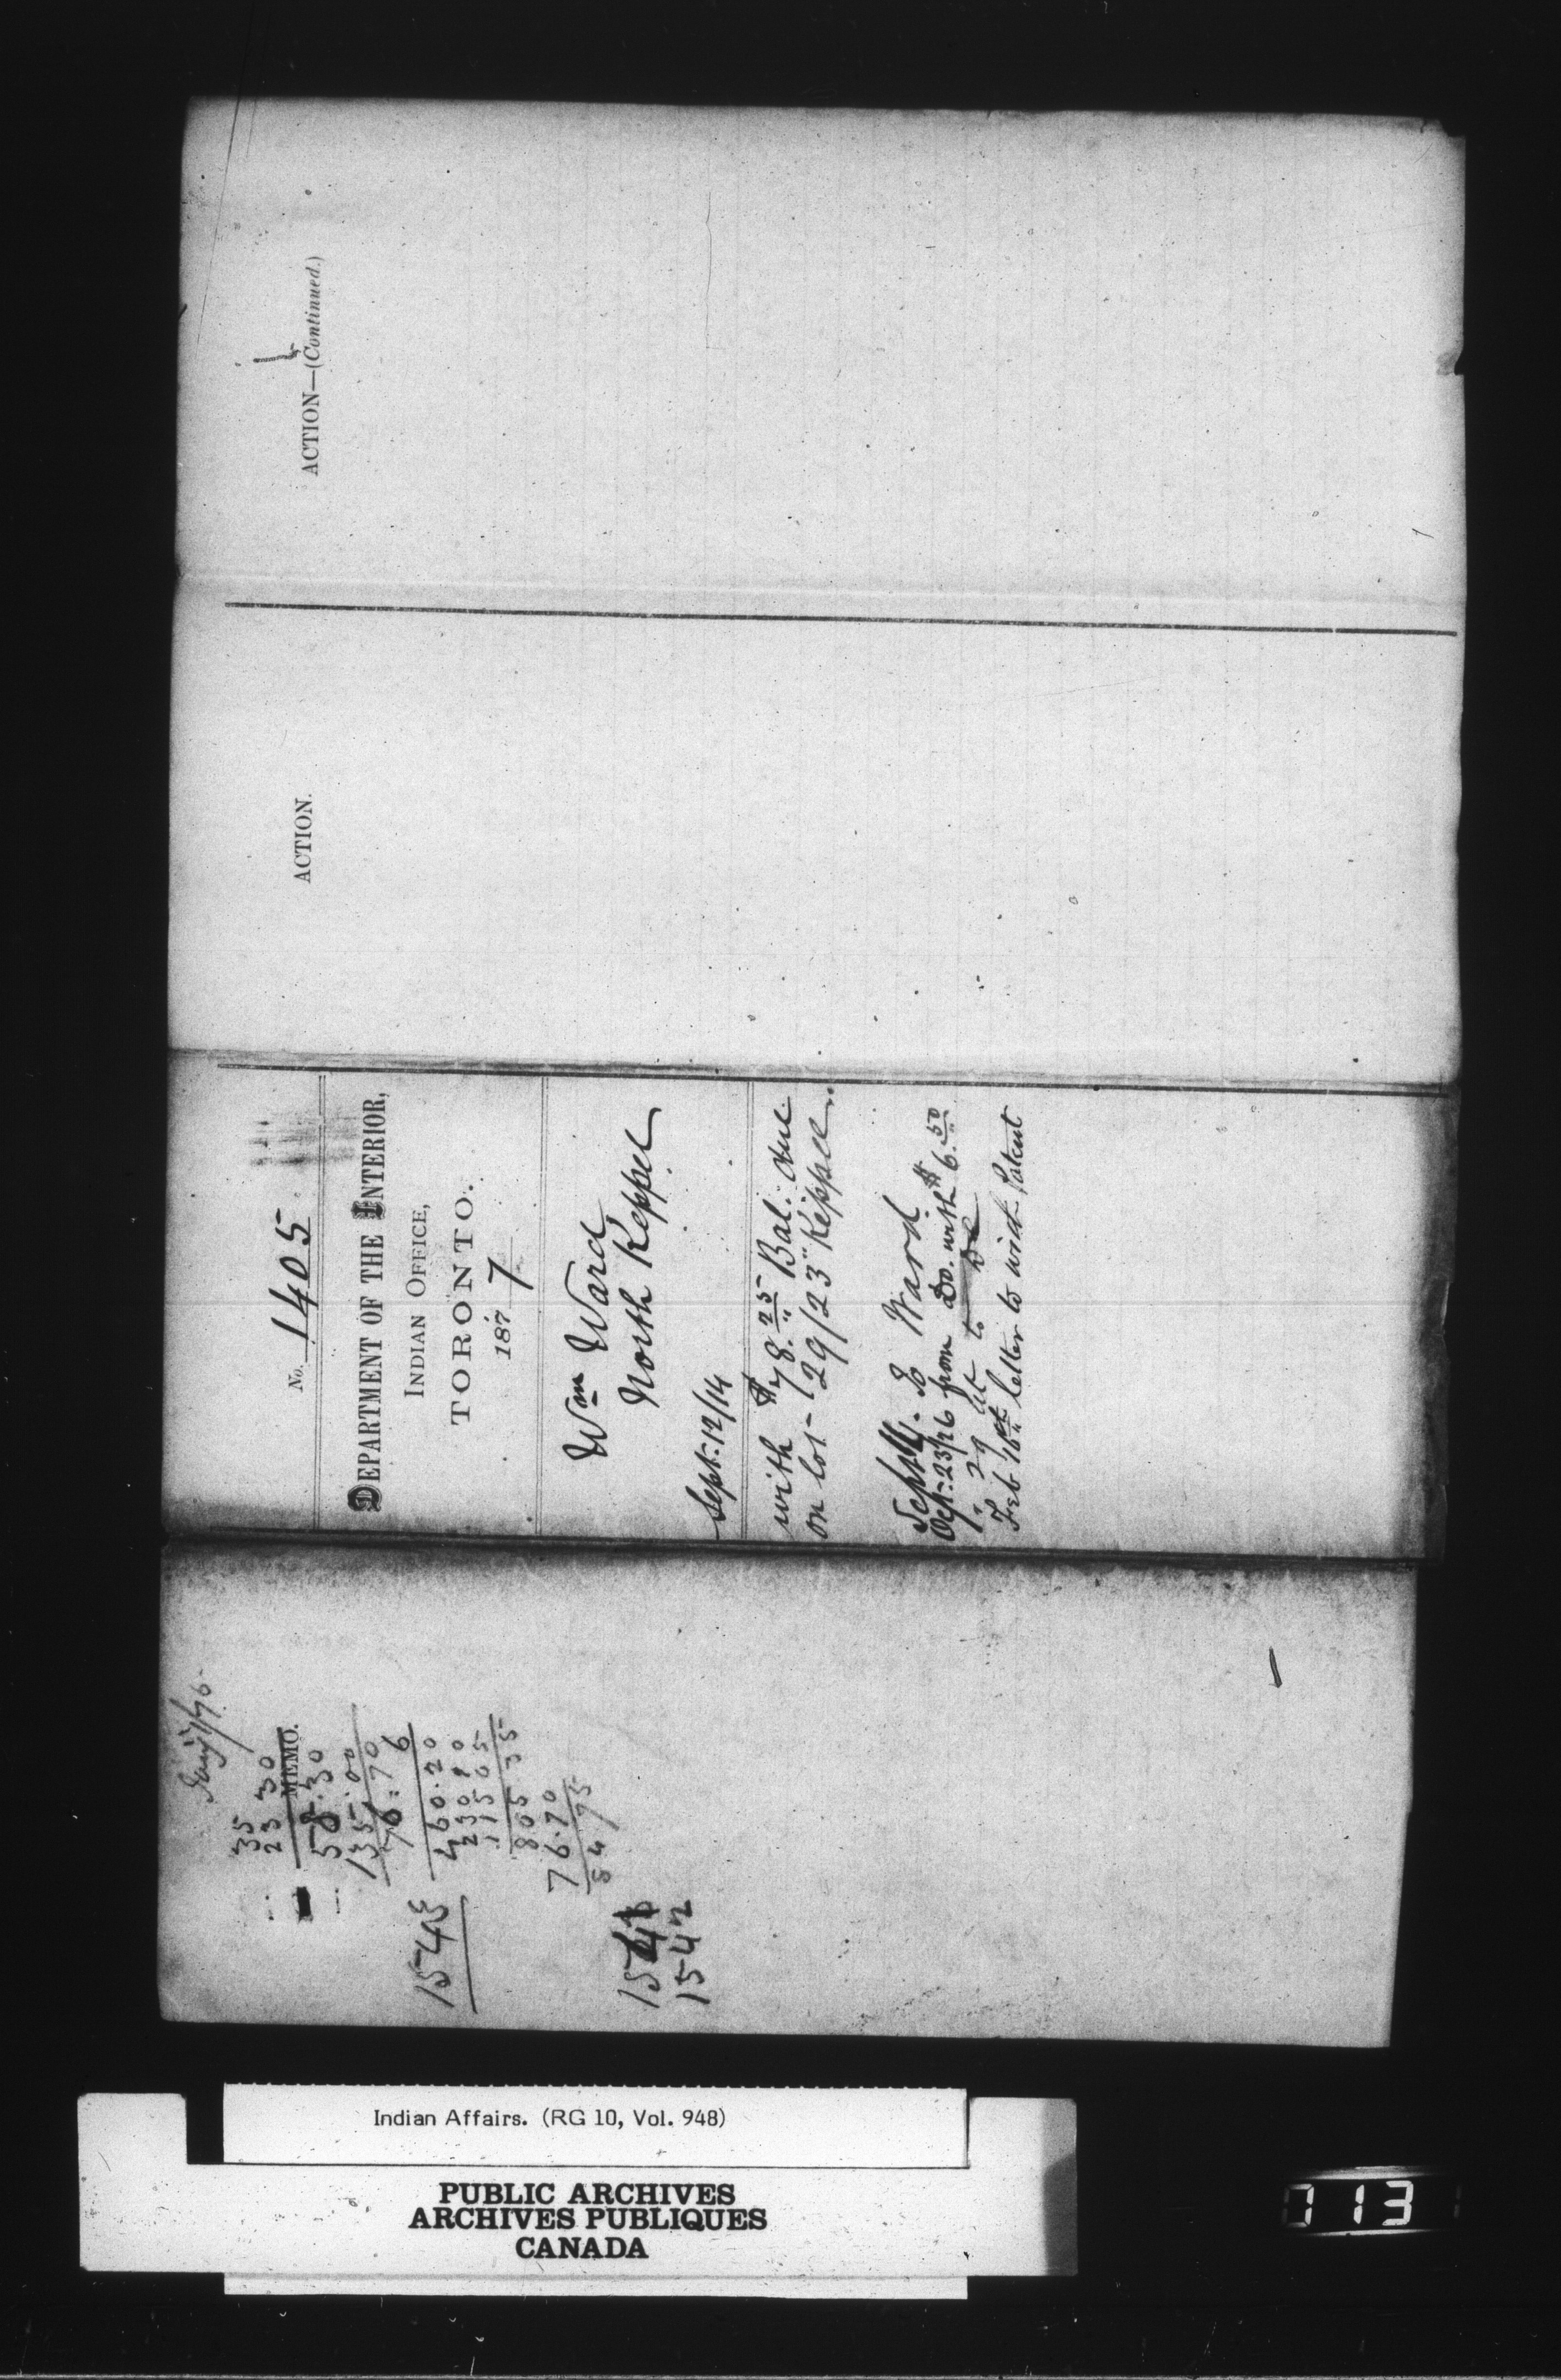 ACTION—(Continued.)
ACTION.
No. 1405
DEPARTMENT OF THE INTERIOR,
INDIAN OFFICE,
TORONTO.
187 7
Wm Ward
North Keppel
Sept. 12/14
with $78.25 Bal. due
on lot 29/23 Keppel
Sept 14. To Ward
Oct. 23/26 from Do. with $6.50
" 29 let to Do
Feb 16 letter to with Patent
Jany 1/76
35
23 30
MEMO.
58.30
135.00
76.70
6
460.20
230 10
115 05
805 35
76.70
84 75
1543
1541
1542
Indian Affairs. (RG 10, Vol. 948)
PUBLIC ARCHIVES
ARCHIVES PUBLIQUES
CANADA
713